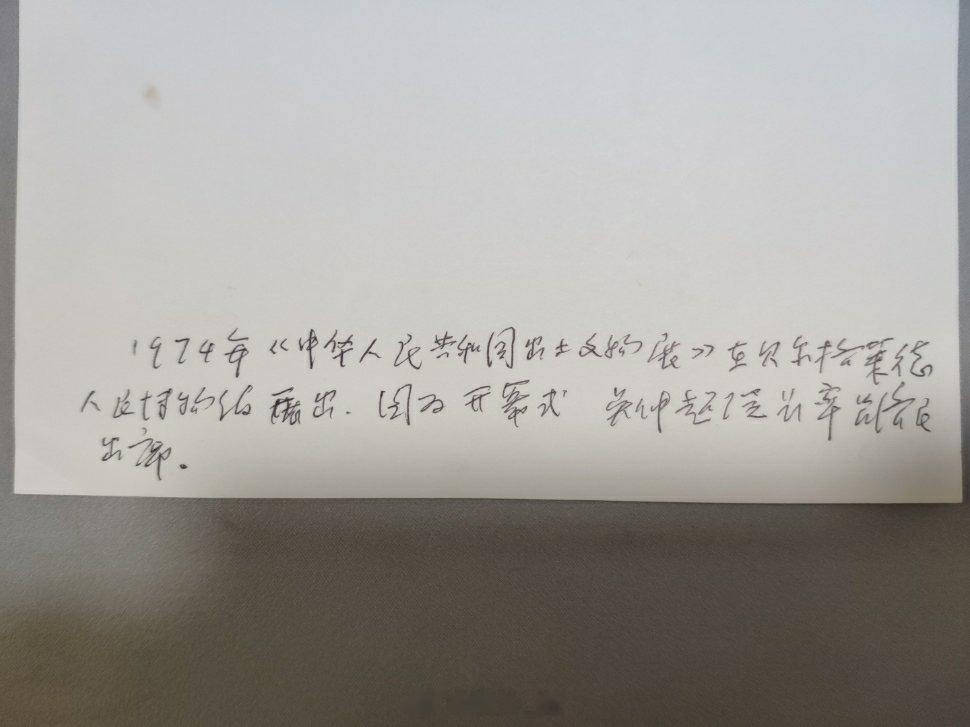 1974年《中华人民共和国出土文物展》在贝尔格莱德
人民博物馆展出.图为开幕式 吴仲超院长率团
出席。